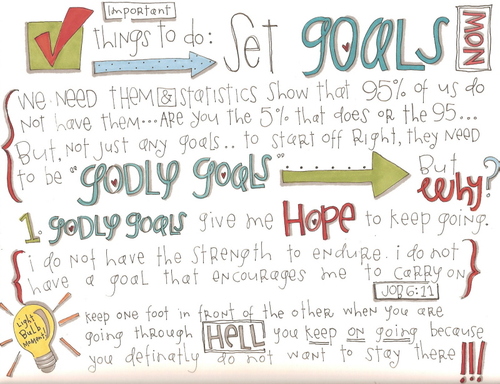 Important
things to do: Set GOALS NOW
WE NEED THEM & STATISTICS SHOW THAT 95% OF US DO
NOT HAVE THEM... ARE YOU THE 5% THAT DOES OR THE 95...
BUT, NOT JUST ANY GOALS.. to START OFF RIGHT, they NEED
to be "GODLY GOALS" But
Why?
1. GODLY GOALS give me HOPE to keep going.
i do not have the STRENGTH to ENDURE. i do not
have a goal that encourages me to CARRY ON
JOB 6:11
Light
Bulb
Moment!
keep one foot in front of the other when you are
going through HELL you keep on going because
you definatly do not want to stay there!!!